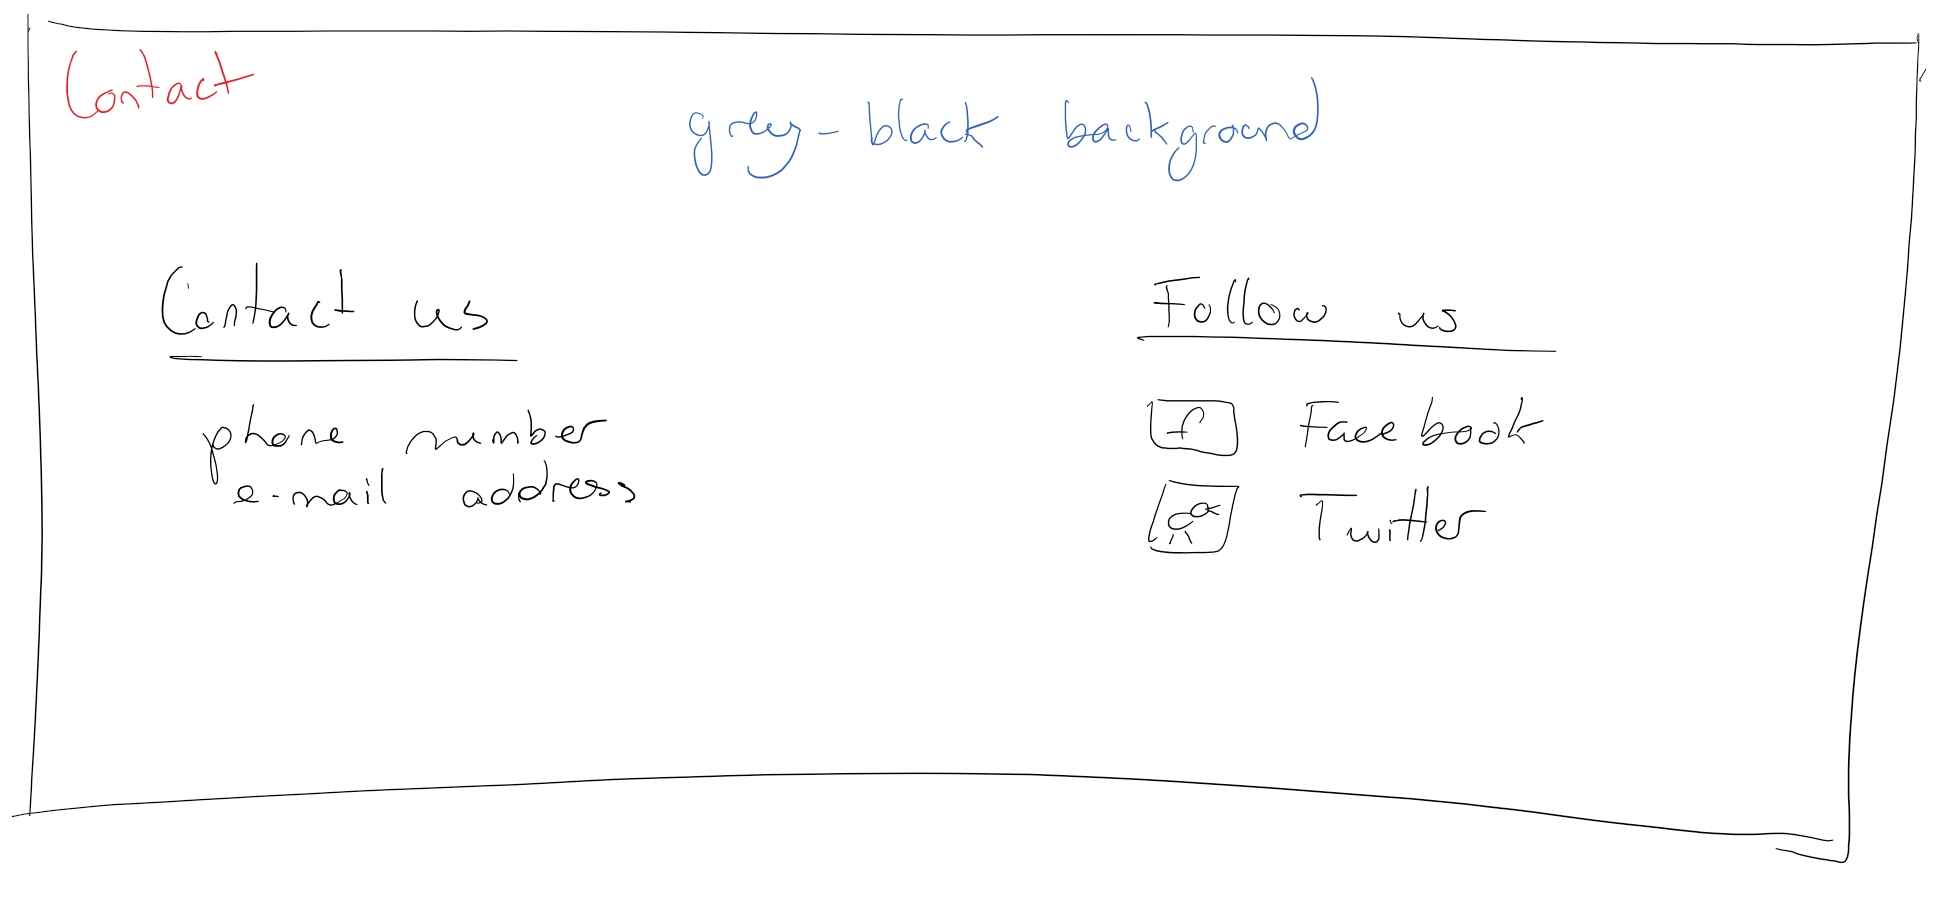 Contact
grey-black background
Contact us
phone number
e-mail address
Follow us
f Facebook
Twitter